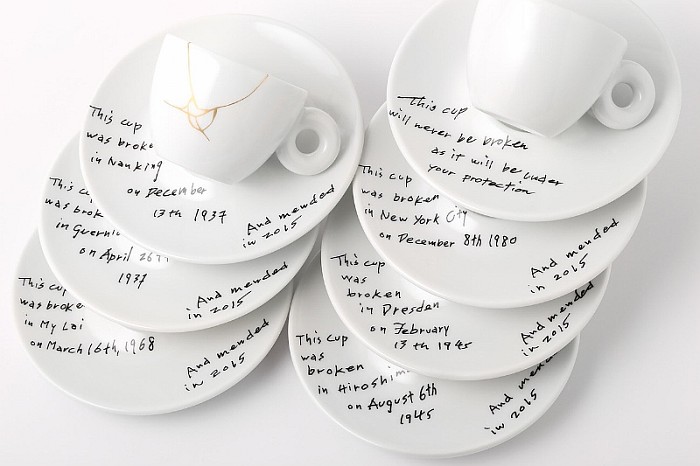 This cup
was broke
in Nanking
on December
13th 1937
And mended
in 2015
This cup
was brok
in Guernic
on April 26th
1937
And mended
in 2015
This cup
was broke
in My Lai
on March 16th, 1968
And mended
in 2015
This cup
will never be broken
as it will be under
your protection
This cup
was broken
in New York City
on December 8th 1980
And mended
in 2015
This cup
was
broken
in Dresden
on February
13th 1945
And mended
in 2015
This cup
was
broken
in Hiroshima
on August 6th
1945
And mended
in 2015